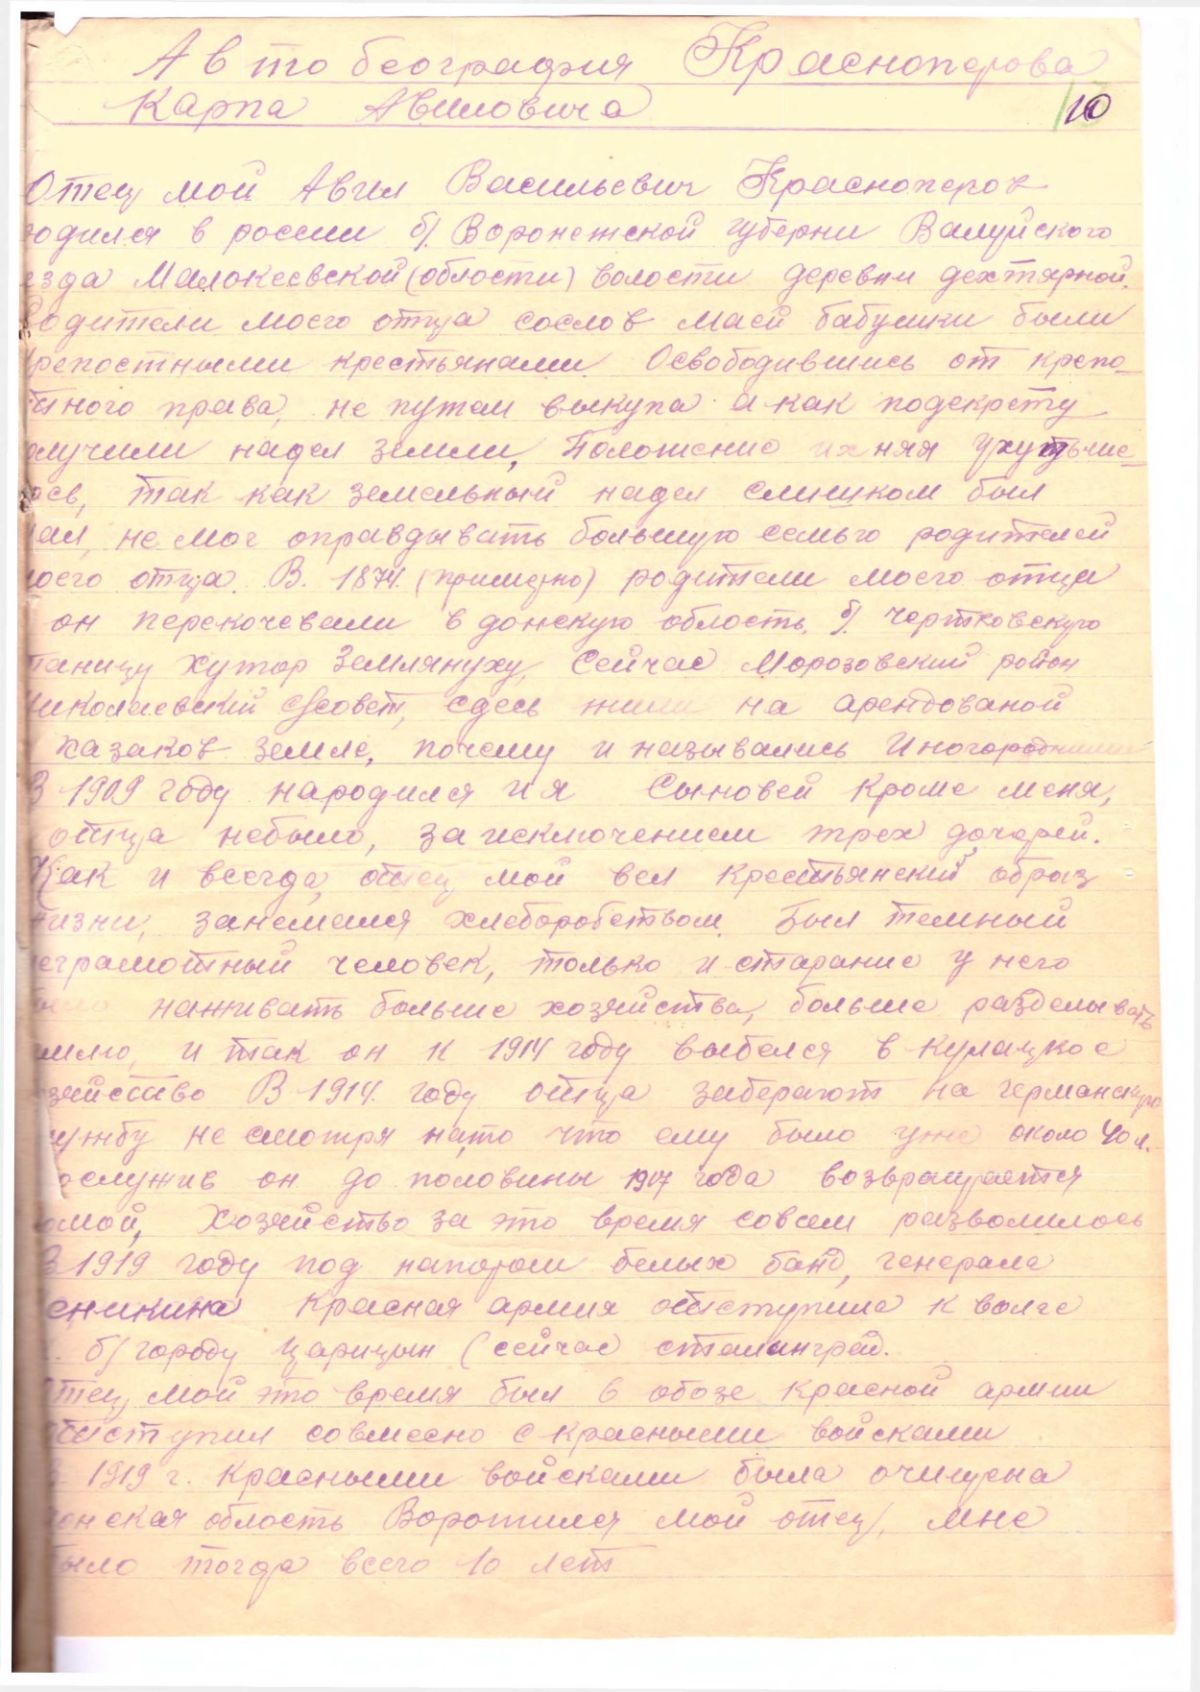 Автобеография Красноперова
Карпа Авиловича
10
Отец мой Авил Васильевич Красноперов
одился в россии б/. Воронежской губерни Валуйского
езда Малокеевской (области) волости деревни дехтярной.
Родители моего отца сослов маей бабушки были
репостными крестьянами. Освободившись от крепо-
тного права, не путем выкупа а как подекрету
олучили надел земли, Положение ихняя ухутьшие-
ось, так как земельный надел слишком был
ал, не мог оправдывать большую семью родителей
оего отца. В. 1874. (примерно) родители моего отца
он перекочевали в донскую область. б/. чертковскую
таницу хутор Землянуху, Сейчас Морозовский район
иколаевский с/совет, сдесь жили на арендованой
казаков земле, почему и назывались Иногородними
В 1909 году народился и я Сыновей кроме меня,
отца небыло, за исключением трех дочерей.
Как и всегда, отец мой вел крестьянский образ
изни, занемался хлеборобством. Был темный
еграмотный человек, только и старание у него
было наживать больше хозяйства, больше разделывать
емлю, и так он к 1914 году выбелся в кулацкое
зяйство В 1914. году отца заберают на германскую
ужбу не смотря нато что ему было уже около 40 л.
ослужив он до половины 1917 года возвращается
омой, Хозяйство за это время совсем развалилось
В 1919 году под напором белых банд, генерала
еникина Красная армия отступила к волге
к. б/ городу Царицын (сейчас сталинград.
Отец мой это время был в обозе красной армии
отступил совмесно с красными войсками
1919 г. Красными войсками была очищена
онская область Воротился мой отец, мне
ыло тогда всего 10 лет